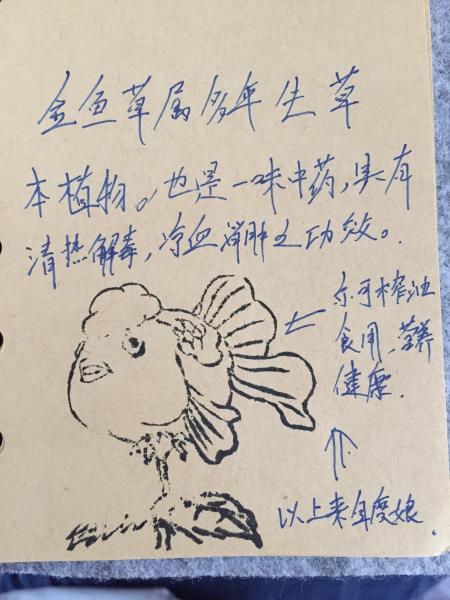 金鱼草属多年生草
本植物。也是一味中药,具有
清热解毒,冷血消肿之功效。
亦可榨油
食用,营养
健康.
以上来自度娘.